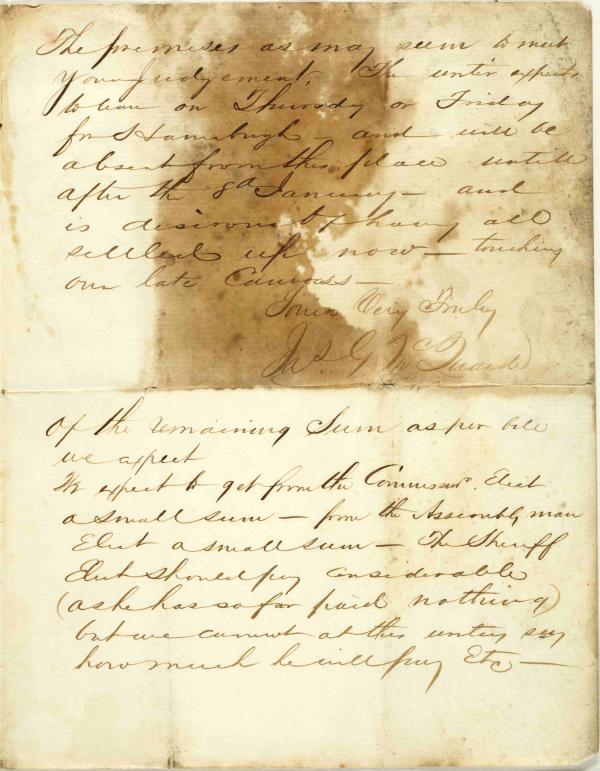 The premises as may seem to meet
your Judgement, The writer expects
to leave on Thursday or Friday
for Harrisburgh - and will be
absent from this place untill
after the 8th January - and
is desirous of having all
settled up now - touching
our late Canvass -
Yours Very Truly
Jas. G. McQuaide
Of the remaining Sum as per bill
we expect
We expect to get from the Commissr. Elect
a small sum - from the Assembly man
Elect a small sum - The Sheriff
Elect should pay considerable
(as he has so far paid nothing)
but we cannot at this writing say
how much he will pay Etc -